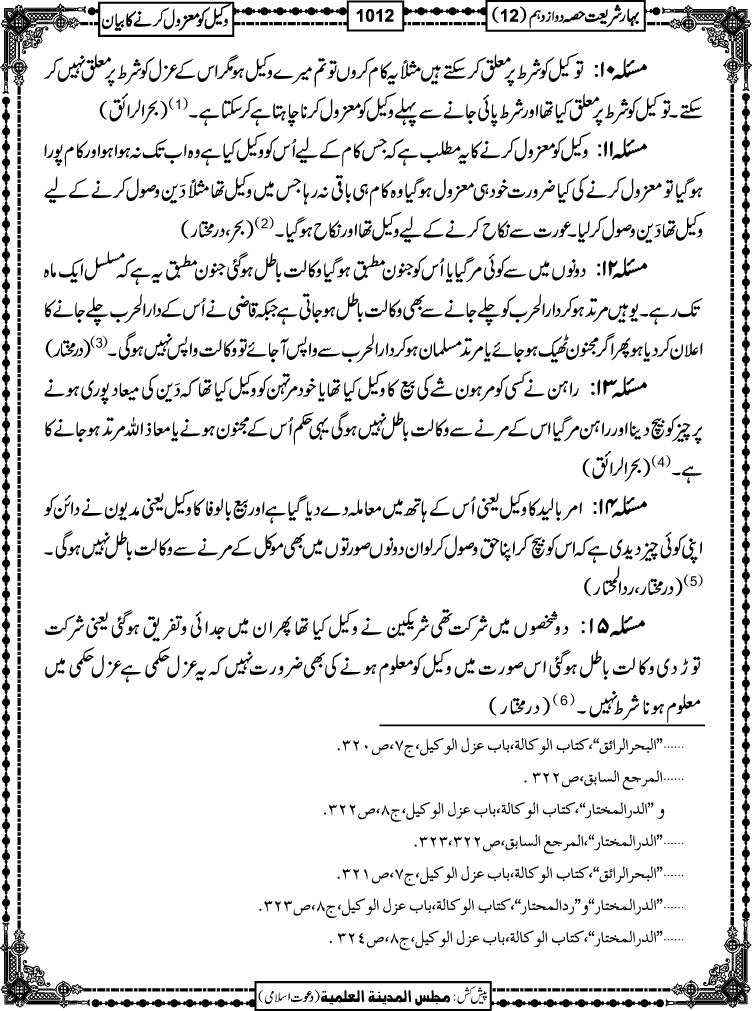 بہارِ شریعت حصہ دوازدہم (12)
1012
وکیل کو معزول کرنے کا بیان
مسئلہ ۱۰: توکیل کو شرط پر معلق کرسکتے ہیں مثلاً یہ کام کروں تو تم میرے وکیل ہو مگر اس کے عزل کو شرط پر معلق نہیں کر
سکتے۔ توکیل کو شرط پر معلق کیا تھا اور شرط پائی جانے سے پہلے وکیل کو معزول کرنا چاہتا ہے کرسکتا ہے۔(1) (بحرالرائق)
مسئلہ ۱۱: وکیل کو معزول کرنے کا یہ مطلب ہے کہ جس کام کے لیے اُس کو وکیل کیا ہے وہ اب تک نہ ہوا ہو اور کام پورا
ہوگیا تو معزول کرنے کی کیا ضرورت خود ہی معزول ہوگیا وہ کام ہی باقی نہ رہا جس میں وکیل تھا مثلاً دَین وصول کرنے کے لیے
وکیل تھا دَین وصول کرلیا۔ عورت سے نکاح کرنے کے لیے وکیل تھا اور نکاح ہوگیا۔(2) (بحر، درمختار)
مسئلہ ۱۲: دونوں میں سے کوئی مرگیا یا اُس کو جنون مطبق ہوگیا وکالت باطل ہوگئی جنون مطبق یہ ہے کہ مسلسل ایک ماہ
تک رہے۔ یوہیں مرتد ہوکر دارالحرب کو چلے جانے سے بھی وکالت باطل ہوجاتی ہے جبکہ قاضی نے اُس کے دارالحرب چلے جانے کا
اعلان کردیا ہو پھر اگر مجنون ٹھیک ہوجائے یا مرتد مسلمان ہوکر دارالحرب سے واپس آجائے تو وکالت واپس نہیں ہوگی۔(3) (درمختار)
مسئلہ ۱۳: راہن نے کسی کو مرہون شے کی بیع کا وکیل کیا تھا یا خود مرتہن کو وکیل کیا تھا کہ دَین کی میعاد پوری ہونے
پر چیز کو بیچ دینا اور راہن مرگیا اس کے مرنے سے وکالت باطل نہیں ہوگی یہی حکم اُس کے مجنون ہونے یا معاذ اللہ مرتد ہوجانے کا
ہے۔(4) (بحرالرائق)
مسئلہ ۱۴: امر بالید کا وکیل یعنی اُس کے ہاتھ میں معاملہ دے دیا گیا ہے اور بیع بالوفا کا وکیل یعنی مدیون نے دائن کو
اپنی کوئی چیز دیدی ہے کہ اس کو بیچ کر اپنا حق وصول کرلو ان دونوں صورتوں میں بھی موکل کے مرنے سے وکالت باطل نہیں ہوگی۔
(5) (درمختار، ردالمحتار)
مسئلہ ۱۵: دو شخصوں میں شرکت تھی شریکین نے وکیل کیا تھا پھر ان میں جدائی و تفریق ہوگئی یعنی شرکت
توڑ دی وکالت باطل ہوگئی اس صورت میں وکیل کو معلوم ہونے کی بھی ضرورت نہیں کہ یہ عزل حکمی ہے عزل حکمی میں
معلوم ہونا شرط نہیں۔(6) (درمختار)
......”البحرالرائق“، کتاب الوکالة، باب عزل الوکیل، ج۷، ص۳۲۰.
......المرجع السابق، ص۳۲۲ .
و ”الدرالمختار“، کتاب الوکالة، باب عزل الوکیل، ج۸، ص۳۲۲.
......”الدرالمختار“، المرجع السابق، ص۳۲۲،۳۲۳.
......”البحرالرائق“، کتاب الوکالة، باب عزل الوکیل، ج۷، ص۳۲۱.
......”الدرالمختار“ و ”ردالمحتار“، کتاب الوکالة، باب عزل الوکیل، ج۸، ص۳۲۳.
......”الدرالمختار“، کتاب الوکالة، باب عزل الوکیل، ج۸، ص۳۲٤ .
پیش کش: مجلس المدينة العلمية (دعوت اسلامی)